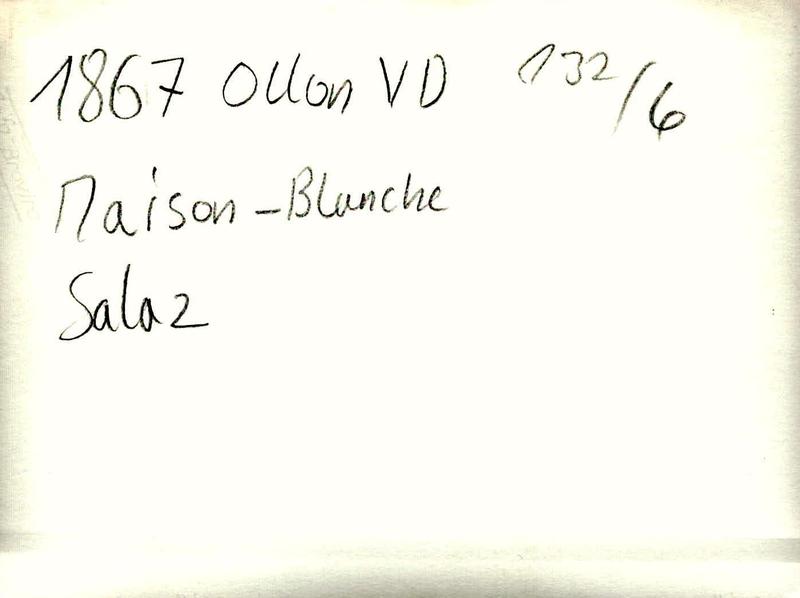 1867 Ollon VD 132/6
Maison-Blanche
Salaz